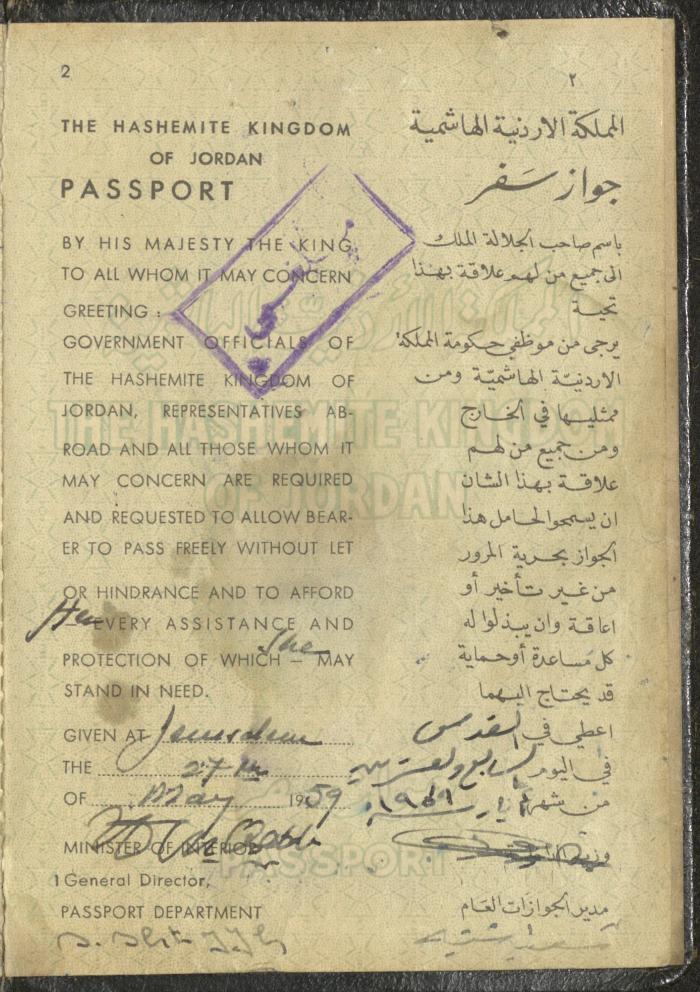 2
THE HASHEMITE KINGDOM
OF JORDAN
PASSPORT
BY HIS MAJESTY THE KING
TO ALL WHOM IT MAY CONCERN
GREETING :
GOVERNMENT OFFICIALS OF
THE HASHEMITE KINGDOM OF
JORDAN, REPRESENTATIVES AB-
ROAD AND ALL THOSE WHOM IT
MAY CONCERN ARE REQUIRED
AND REQUESTED TO ALLOW BEAR-
ER TO PASS FREELY WITHOUT LET
OR HINDRANCE AND TO AFFORD
Her EVERY ASSISTANCE AND
PROTECTION OF WHICH She MAY
STAND IN NEED.
GIVEN AT Jerusalem
THE 27th
OF May 1959
MINISTER OF INTERIOR
General Director,
PASSPORT DEPARTMENT
٢
المملكة الاردنية الهاشمية
جواز سَفر
باسم صاحب الجلالة الملك
الى جميع من لهم علاقة بهذا
تحية
يرجى من موظفي حكومة المملكة
الاردنيّة الهاشميّة ومن
ممثليها في الخارج
ومن جميع من لهم
علاقة بهذا الشان
ان يسمحوا لحامل هذا
الجواز بحرية المرور
من غير تأخير أو
اعاقة وان يبذلوا له
كل مساعدة أو حماية
قد يحتاج اليهما
اعطي في القدس
في اليوم السابع والعشرين
من شهر ايار سنة ١٩٥٩
مدير الجوازات العام
THE HASHEMITE KINGDOM
OF JORDAN
PASSPORT